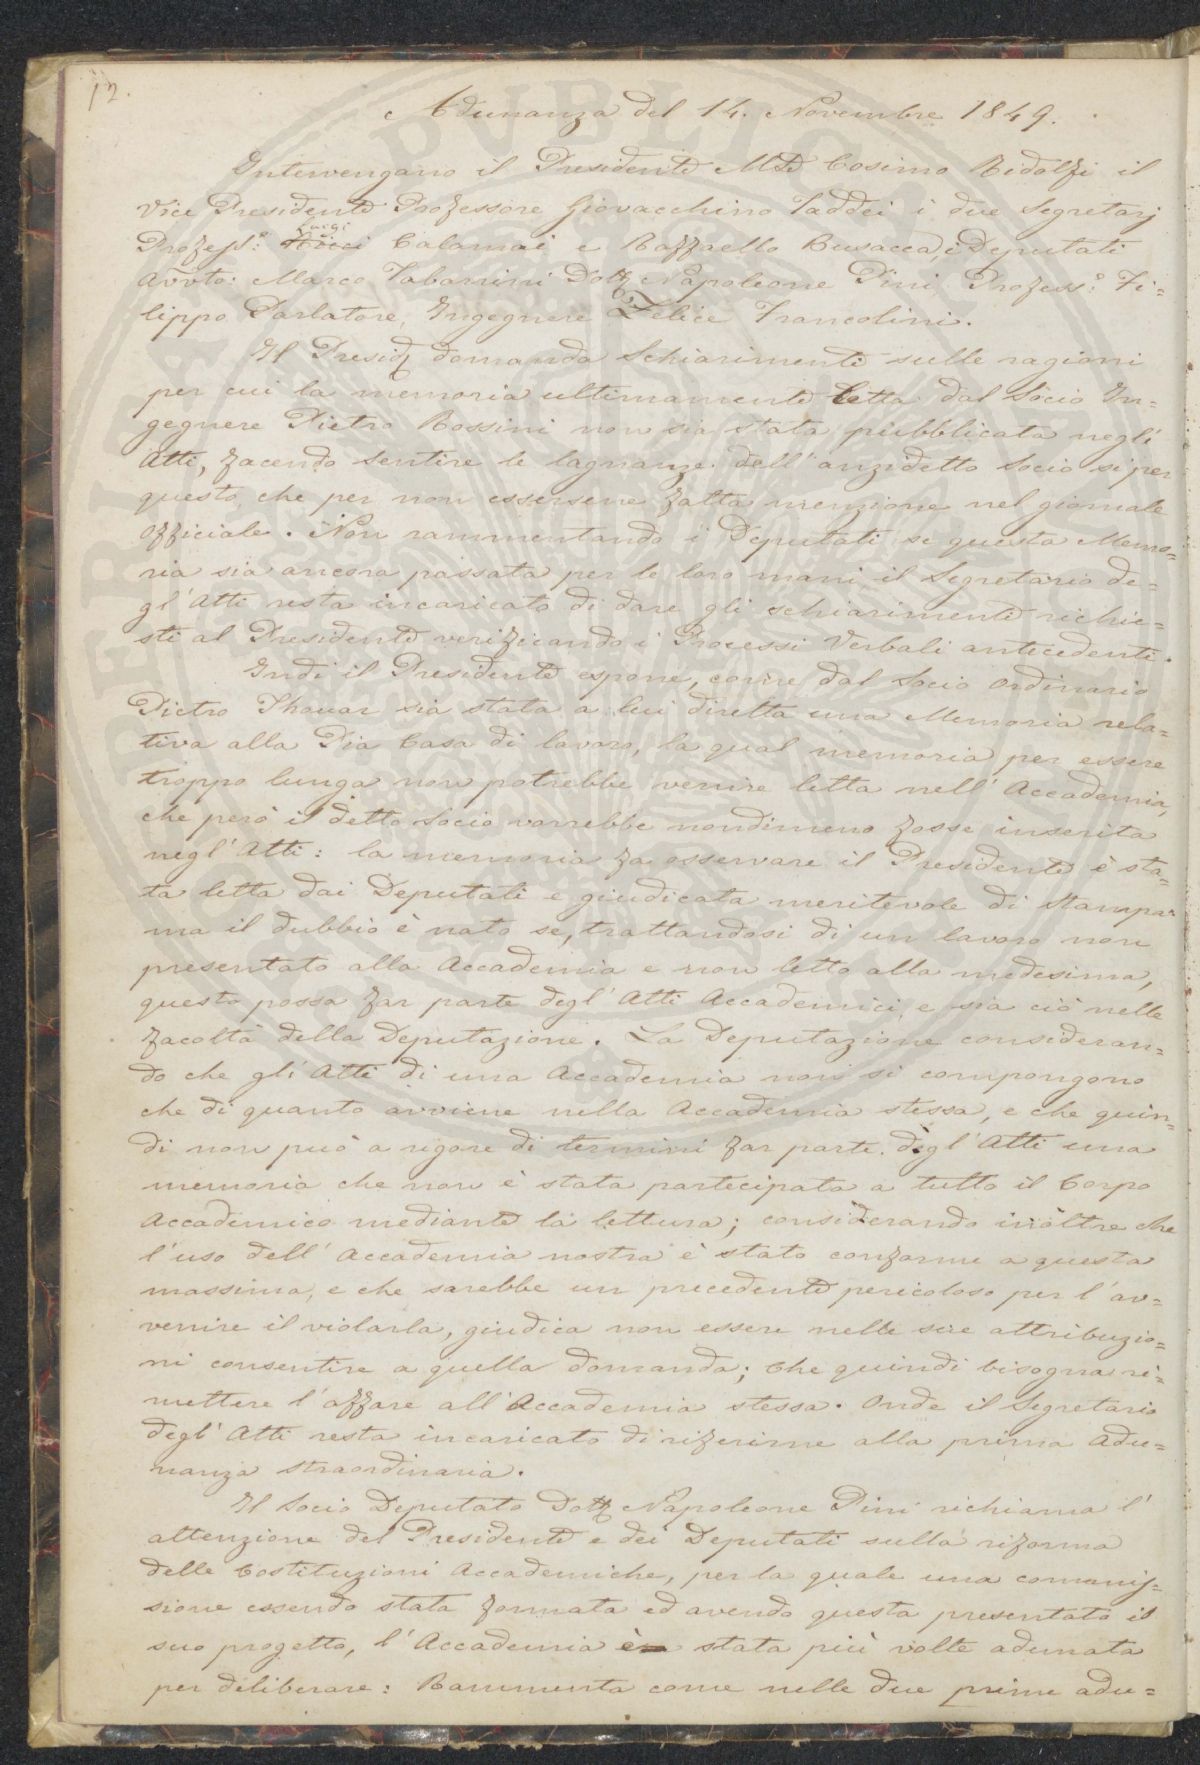 12.
Adunanza del 14. Novembre 1849.
Intervengano il Presidente Mse Cosimo Ridolfi il
Vice Presidente Professore Giovacchino Taddei i due Segretarj
Luigi
Profess.e Calamai e Raffaello Busacca, i Deputati
Avvto: Marco Tabarrini Dott Napoleone Pini, Profess.e Fi=
lippo Parlatore, Ingegnere Felice Francolini.
Il Presid domanda schiarimenti sulle ragioni
per cui la memoria ultimamente letta dal Socio In=
gegnere Pietro Rossini non sia stata pubblicata negli
Atti, facendo sentire le lagnanze dell' anzidetto Socio si per
questo, che per non essersene fatta menzione nel giornale
Officiale. Non rammentando i Deputati se questa Memo=
ria sia ancora passata per le loro mani il Segretario de=
gl' Atti resta incaricato di dare gli schiarimenti richie=
sti al Presidente verificando i Processi Verbali antecedenti.
Indi il Presidente espone, come dal Socio Ordinario
Pietro Thouar sia stata a lui diretta una Memoria rela=
tiva alla Pia Casa di lavoro, la qual memoria per essere
troppo lunga non potrebbe venire letta nell' Accademia,
che però il detto Socio vorrebbe nondimeno fosse inserita
negl' Atti: la memoria fa osservare il Presidente è sta=
ta letta dai Deputati e giudicata meritevole di Stampa:
ma il dubbio è nato se, trattandosi di un lavoro non
presentato alla Accademia e non letto alla medesima,
questo possa far parte degl' Atti Accademici, e sia ciò nelle
facoltà della Deputazione. La Deputazione consideran=
do che gli Atti di una Accademia non si compongono
che di quanto avviene nella Accademia stessa, e che quin=
di non può a rigore di termini far parte degl' Atti una
memoria che non è stata partecipata a tutto il Corpo
Accademico mediante la lettura; considerando inoltre che
l'uso dell' Accademia nostra è stato conforme a questa
massima, e che sarebbe un precedente pericoloso per l'av=
venire il violarla, giudica non essere nelle sue attribuzio=
ni consentire a quella domanda; che quindi bisogna ri=
mettere l'affare all' Accademia stessa. Onde il Segretario
degl' Atti resta incaricato di riferirne alla prima Adu=
nanza straordinaria.
Il Socio Deputato Dott Napoleone Pini richiama l'
attenzione del Presidente e dei Deputati sulla riforma
delle Costituzioni Accademiche, per la quale una commis=
sione essendo stata formata ed avendo questa presentato il
suo progetto, l'Accademia è stata più volte adunata
per deliberare: Rammenta come nelle due prime adu=